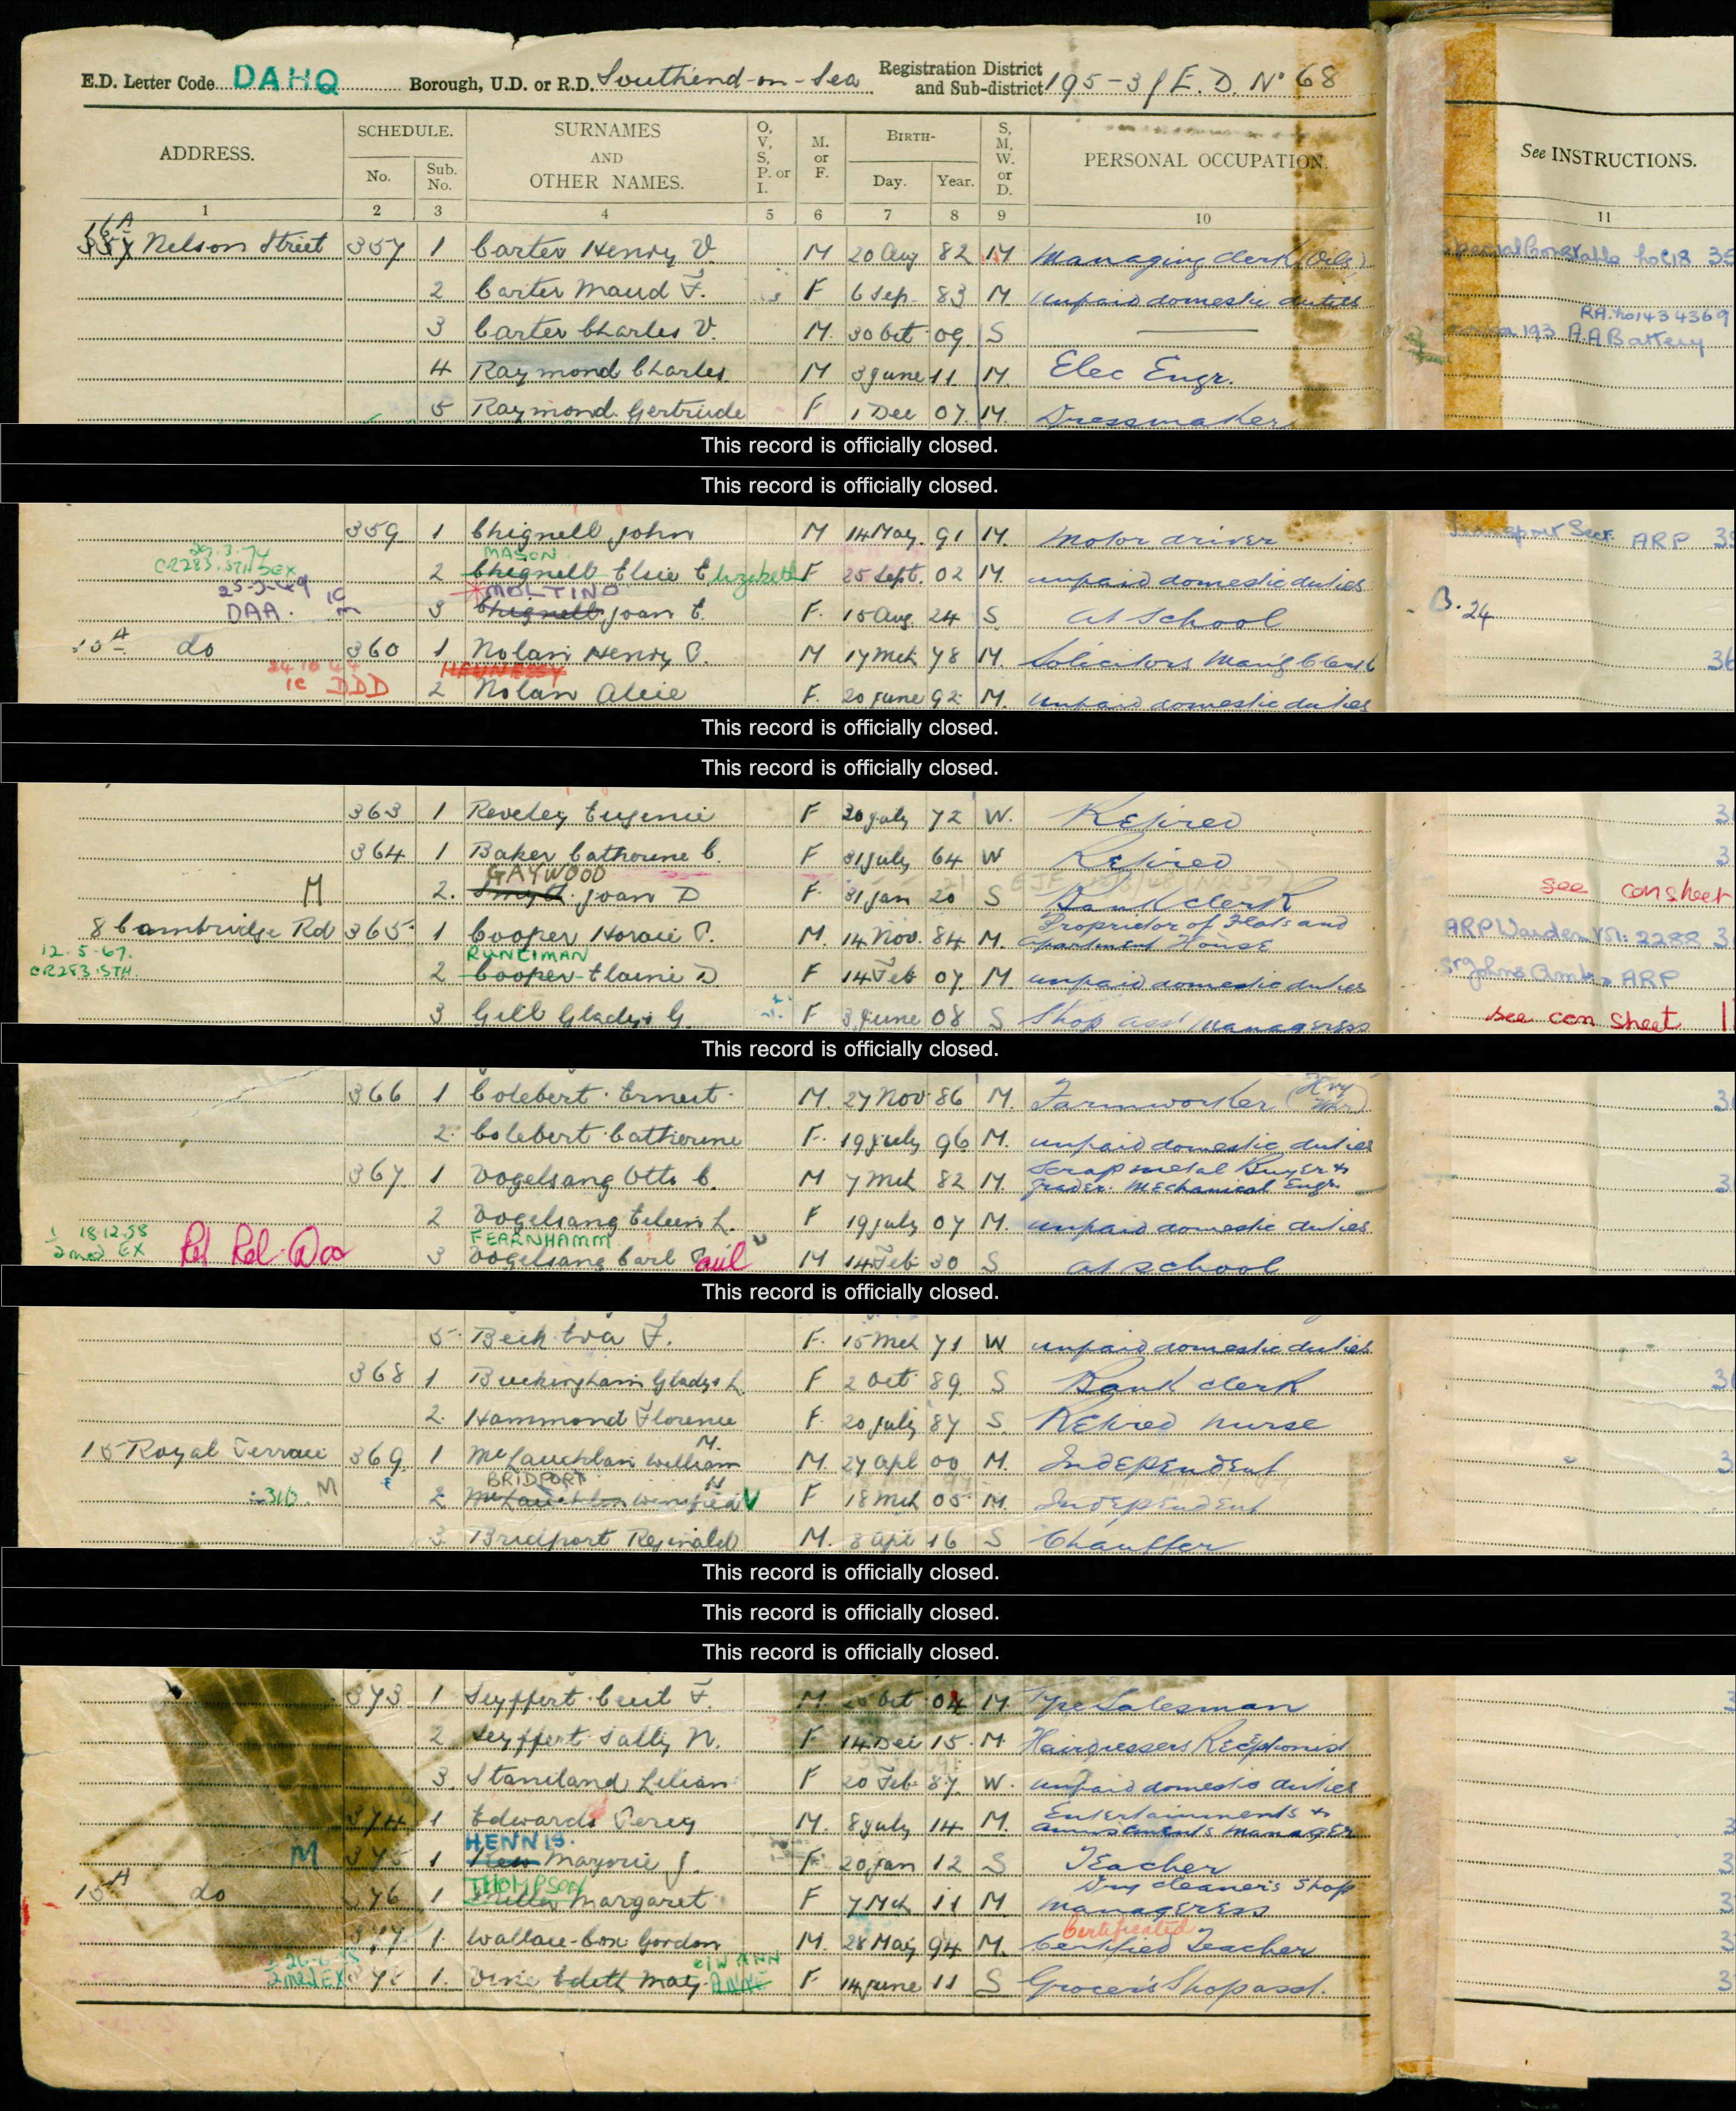 E.D. Letter Code DAHQ Borough, U.D. or R.D. Southend-on-Sea Registration District and Sub-district 195-3/E.D. No 68
ADDRESS. SCHEDULE. No. Sub. No. SURNAMES AND OTHER NAMES. O, V, S, P. or I. M. or F. BIRTH- Day. Year. S, M, W. or D. PERSONAL OCCUPATION. See INSTRUCTIONS.
1 2 3 4 5 6 7 8 9 10 11
16A
Nelson Street 357 1 Carter Henry V. M 20 Aug 82 M Managing clerk (Oils) Special Constable
2 Carter Maud F. F 6 Sep. 83 M unpaid domestic duties
RA. No 1434369
3 Carter Charles V. M. 30 Oct 09 S 193 A.A Battery
4 Raymond Charles M 3 June 11 M. Elec Engr.
5 Raymond Gertrude F 1 Dec 07 M. Dressmaker
This record is officially closed.
This record is officially closed.
359 1 Chignell John M 14 May 91 M. Motor driver ARP
3.74 MASON
CR283.STH SEX 2 Chignell Elsie Elizabeth F 25 Sept. 02 M. unpaid domestic duties
MOLTINO
DAA. 3 Chignell Joan E. F. 15 Aug 24 S at school B. 24
A do 360 1 Nolan Henry P. M 17 Mch 78 M. Solicitors Man'g Clerk
HENNESSY
1C DDD 2 Nolan Alice F. 20 June 92 M. Unpaid domestic duties
This record is officially closed.
This record is officially closed.
363 1 Reveley Eugenie F 30 July 72 W. Retired
364 1 Baker Catherine C. F 31 July 64 W Retired
GAYWOOD
M 2. Joan D F 31 Jan 20 S Bank clerk see con sheet
8 Cambridge Rd 365 1 Cooper Horace P. M. 14 Nov. 84 M. Proprietor of Flats and Apartment House ARP Warden 2288
12.5.67. RUNCIMAN
CR283.STH. 2 Cooper Elaine D F 14 Feb 07 M. unpaid domestic duties St Johns Amb. ARP
3 Gill Gladys G. F 3 June 08 S Shop ass' Manageress see con sheet
This record is officially closed.
366 1 Colebert Ernest M. 27 Nov 86 M. Farmworker (Hvy Wkr)
2. Colebert Catherine F. 19 July 96 M. unpaid domestic duties
367 1 Vogelsang Otto C. M 7 Mch 82 M. Scrap metal Buyer & Grader. Mechanical Engr.
2 Vogelsang Eileen L. F 19 July 07 M. unpaid domestic duties
18.12.58 FEARNHAMM
EX 3 Vogelsang Carl Paul M 14 Feb 30 S at school
This record is officially closed.
5. Beck Eva F. F. 15 Mch 71 W unpaid domestic duties
368 1 Buckingham Gladys L. F 2 Oct 89 S Bank clerk
2. Hammond Florence F. 20 July 87 S. Retired nurse
15 Royal Terrace 369 1 McLauchlan William M. M. 27 Apl 00 M. Independent
BRIDPORT
M 2 McLauchlan Winifred V F 18 Mch 05 M. Independent
3. Bridport Reginald M. 3 Apl 16 S Chauffer
This record is officially closed.
This record is officially closed.
This record is officially closed.
373 1 Seyffert Cecil F. M. Oct 04 M Salesman
2 Seyffert Sally N. F 14 Dec 15 M Hairdressers Receptionist
3. Staniland Lilian F 20 Feb 87 W. unpaid domestic duties
374 1 Edwards Percy M. 8 July 14 M. Entertainments & amusements Manager
HENNIS.
M 375 1 Marjorie J. F 20 Jan 12 S Teacher
THOMPSON
15A do 376 1 Miller Margaret F 7 Mch 11 M Dry cleaner's Shop Manageress
Certificated
377 1. Wallace-Cox Gordon M. 28 May 94 M. Certified Teacher
1. Vine Edith May ANNE F 14 June 11 S Grocer's Shop asst.